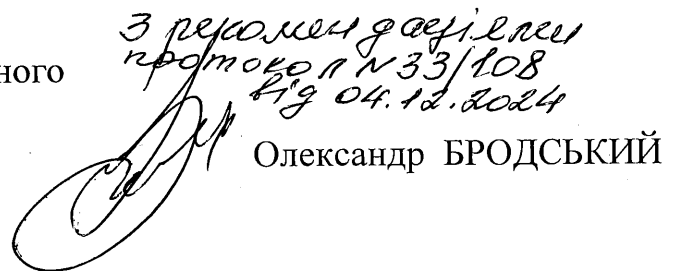 З рекомендаціями
ного
протокол N33/108
від 04.12.2024
Олександр БРОДСЬКИЙ